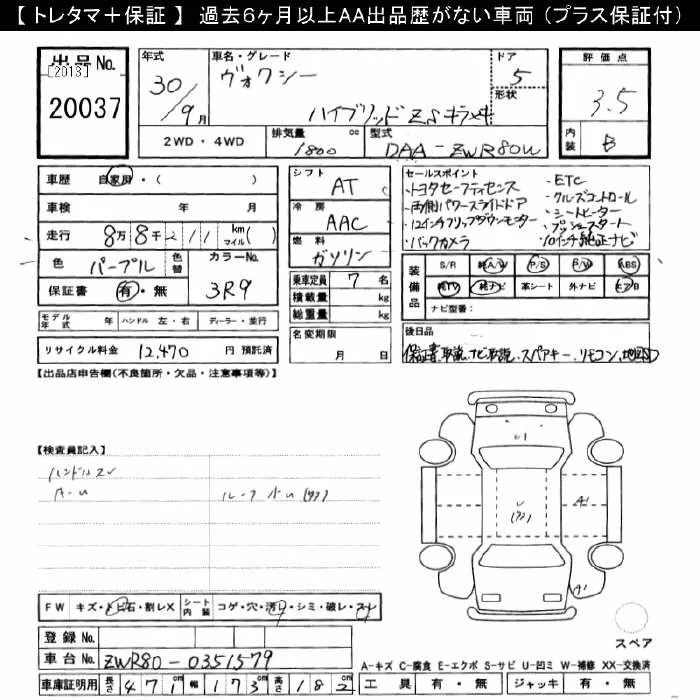 【 トレタマ＋保証 】 過去６ヶ月以上ＡＡ出品歴がない車両（プラス保証付）
出品No.
[2013]
20037
年式
30/9月
車名・グレード
ヴォクシー
ハイブリッド ZS キラメキ
ドア
5
形状
評価点
3.5
内装
B
2WD ・ 4WD
排気量
1800 cc
型式
DAA-ZWR80W
車歴 自家用・( )
車検 年 月
走行 8万8千211 km マイル( )
色 パープル
色替
カラーNo.
3R9
保証書 有・無
シフト
AT
冷房
AAC
燃料
ガソリン
乗車定員 7 名
積載量 kg
総重量 kg
セールスポイント
・トヨタセーフティセンス
・両側パワースライドドア
・12インチフリップダウンモニター
・バックカメラ
・ETC
・クルーズコントロール
・シートヒーター
・プッシュスタート
・10インチ純正ナビ
装備品
S/R 純A/W P/S P/W ABS
純TV 純ナビ 革シート 外ナビ エアB
ナビ型番:
モデル年式 年 ハンドル 左・右 ディーラー・並行
リサイクル料金 12,470 円 預託済
名変期限
月 日
後日品
保証書、取説、ナビ取説、スペアキー、リモコン、地図SD
【出品店申告欄(不良箇所・欠品・注意事項等)】
【検査員記入】
ハンドルスレ
ルーフ
U1
A1
A1
FW キズ・トビ石・割レX
シート内装 コゲ・穴・汚レ・シミ・破レ・スレ
登録No.
車台No. ZWR80-0351579
車庫証明用 長さ 471cm 幅 173cm 高さ 182cm
スペア
A-キズ C-腐食 E-エクボ S-サビ U-凹ミ W-補修 XX-交換済
工具 有・無 ジャッキ 有・無